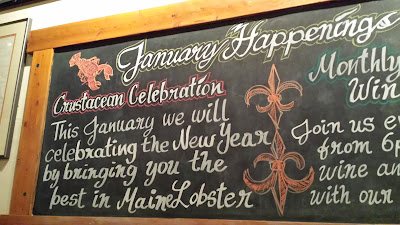 January Happenings
Crustacean Celebration
This January we will
celebrating the New Year
by bringing you the
best in Maine Lobster
Monthly
Win
Join us e
from 6p
wine an
with our